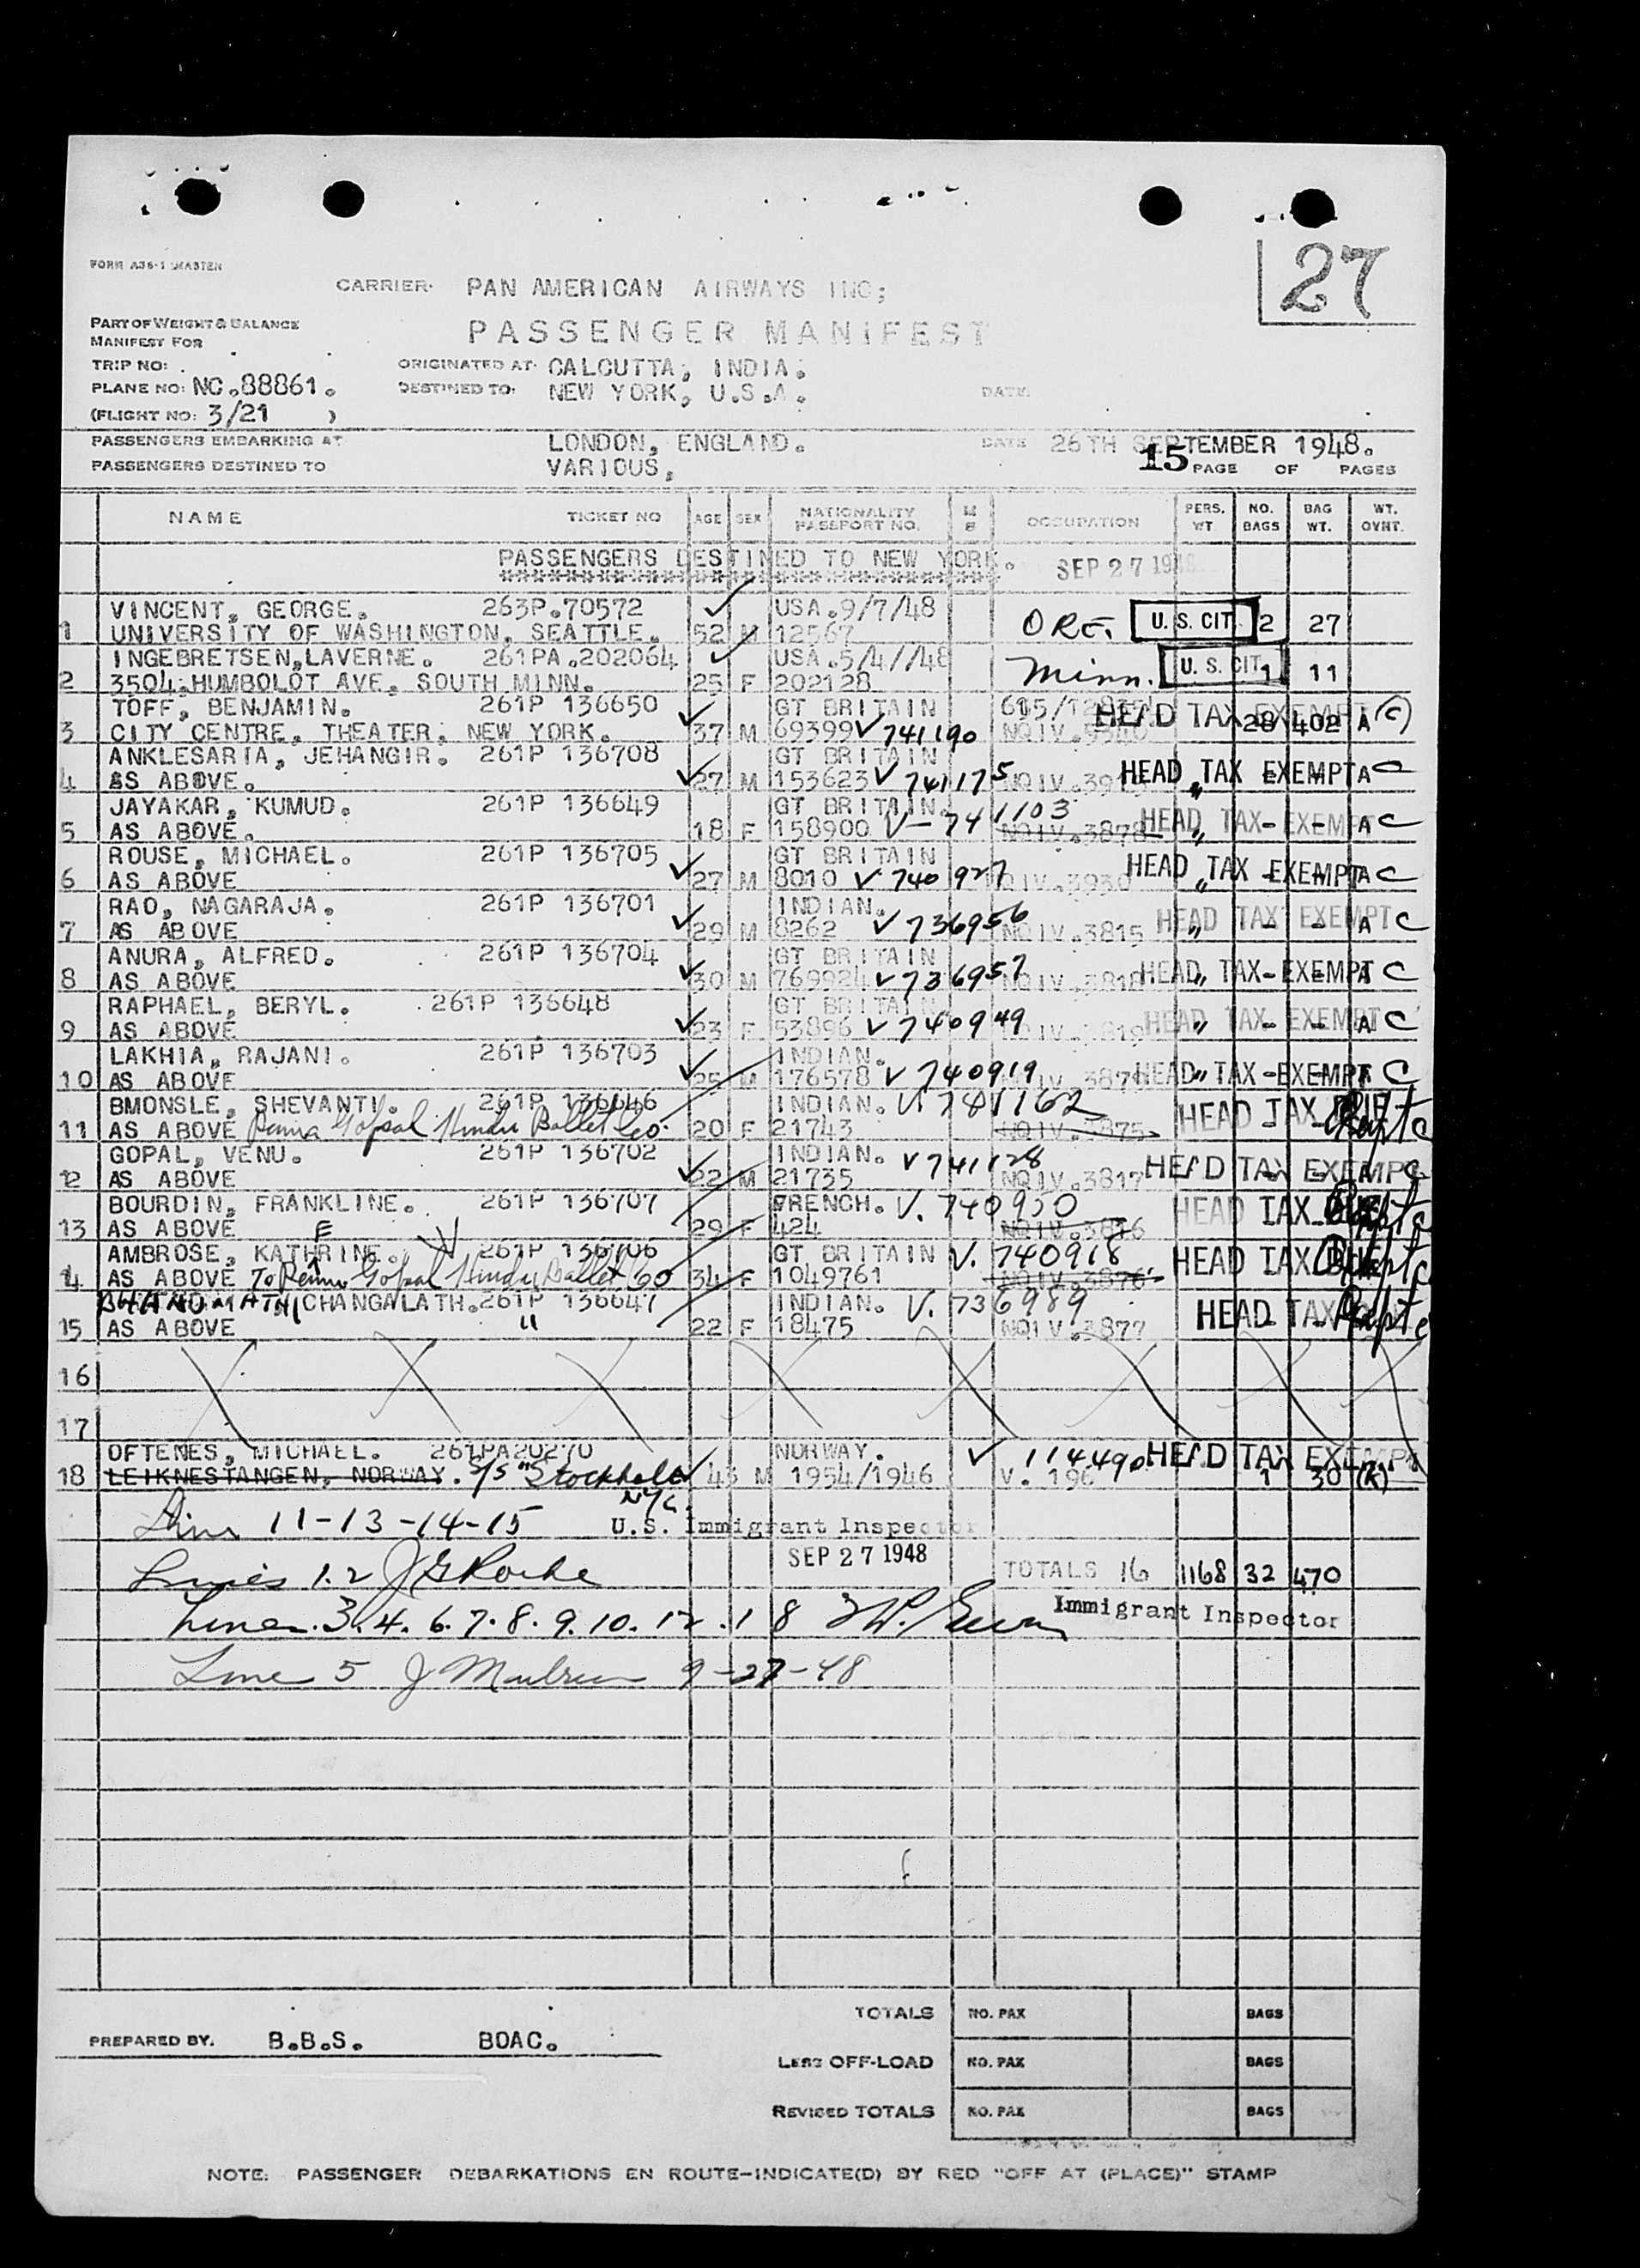 27
FORM A36-1 MASTER
CARRIER: PAN AMERICAN AIRWAYS INC;
PART OF WEIGHT & BALANCE
MANIFEST FOR
PASSENGER MANIFEST
TRIP NO:
ORIGINATED AT: CALCUTTA, INDIA.
PLANE NO: NC.88861. DESTINED TO: NEW YORK, U.S.A. DATE:
(FLIGHT NO: 3/21 )
PASSENGERS EMBARKING AT LONDON, ENGLAND. DATE 26TH SEPTEMBER 1948.
PASSENGERS DESTINED TO VARIOUS, 15 PAGE OF PAGES
NAME TICKET NO AGE SEX NATIONALITY PASSPORT NO. OCCUPATION PERS. WT NO. BAGS BAG WT. WT. OVHT.
PASSENGERS DESTINED TO NEW YORK. SEP 27 1948
VINCENT, GEORGE. 263P.70572 USA.9/7/48
1 UNIVERSITY OF WASHINGTON, SEATTLE. 52 M 12567 ORE. U.S. CIT. 2 27
INGEBRETSEN,LAVERNE. 261PA.202064 USA.5/4//48
2 3504.HUMBOLOT AVE, SOUTH MINN. 25 F 202128 Minn. U. S. CIT. 1 11
TOFF, BENJAMIN. 261P 136650 GT BRITAIN HEAD TAX EXEMPT (C)
3 CITY CENTRE, THEATER, NEW YORK. 37 M 69399 V 741190 28 402 A
ANKLESARIA, JEHANGIR. 261P 136708 GT BRITAIN
4 AS ABOVE. 27 M 153623 V 741175 HEAD TAX EXEMPT A C
JAYAKAR, KUMUD. 261P 136649 GT BRITAIN.
5 AS ABOVE. 18 F 158900 V-741103 NQIV.3878 HEAD TAX EXEMPT A C
ROUSE, MICHAEL. 261P 136705 GT BRITAIN
6 AS ABOVE 27 M 8010 V 740927 NQIV.3930 HEAD TAX EXEMPT A C
RAO, NAGARAJA. 261P 136701 INDIAN.
7 AS ABOVE 29 M 8262 V 736956 NQIV.3815 HEAD TAX EXEMPT A C
ANURA, ALFRED. 261P 136704 GT BRITAIN
8 AS ABOVE 30 M 769924 V 736957 NQIV.3818 HEAD TAX EXEMPT A C
RAPHAEL, BERYL. 261P 136648 GT BRITAIN
9 AS ABOVE 23 F 53896 V 740949 NQIV.3819 HEAD TAX EXEMPT A C
LAKHIA, RAJANI. 261P 136703 INDIAN.
10 AS ABOVE 25 M 176578 V 740919 HEAD TAX EXEMPT C
BMONSLE, SHEVANTI. 261P 136646 INDIAN. V. 741162
11 AS ABOVE Gopal Hindu Ballet Co. 20 F 21743 NQIV.3875 HEAD TAX
GOPAL, VENU. 261P 136702 INDIAN. V 741128
12 AS ABOVE 22 M 21735 NQIV.3817 HEAD TAX EXEMPT C
BOURDIN, FRANKLINE. 261P 136707 FRENCH. V. 740950
13 AS ABOVE 29 F 424 NQIV.3816 HEAD TAX
E
AMBROSE, KATHRINE. 261P 136706 GT BRITAIN V. 740918
14 AS ABOVE To Gopal Hindu Ballet Co 34 F 1049761 NQIV.3876 HEAD TAX
BHANUMATHI CHANGALATH. 261P 136647 INDIAN. V. 736989
15 AS ABOVE " 22 F 18475 NQIV.3877 HEAD TAX
16
17
OFTENES, MICHAEL. 261PA20270 NORWAY. 114490 HEAD TAX EXEMPT
18 LEIKNESTANGEN, NORWAY. S/S "Stockholm" 43 M 1954/1946 V. 196 1 30 (K)
NYC.
Lines 11-13-14-15 U.S. Immigrant Inspector
Lines 1.2 J G Rocke SEP 27 1948 TOTALS 16 1168 32 470
Lines 3.4. 6.7.8.9.10.12.18 Immigrant Inspector
Line 5 9-27-48
TOTALS NO. PAX BAGS
PREPARED BY. B.B.S. BOAC.
LESS OFF-LOAD NO. PAX BAGS
REVISED TOTALS NO. PAX BAGS
NOTE: PASSENGER DEBARKATIONS EN ROUTE-INDICATE(D) BY RED "OFF AT (PLACE)" STAMP